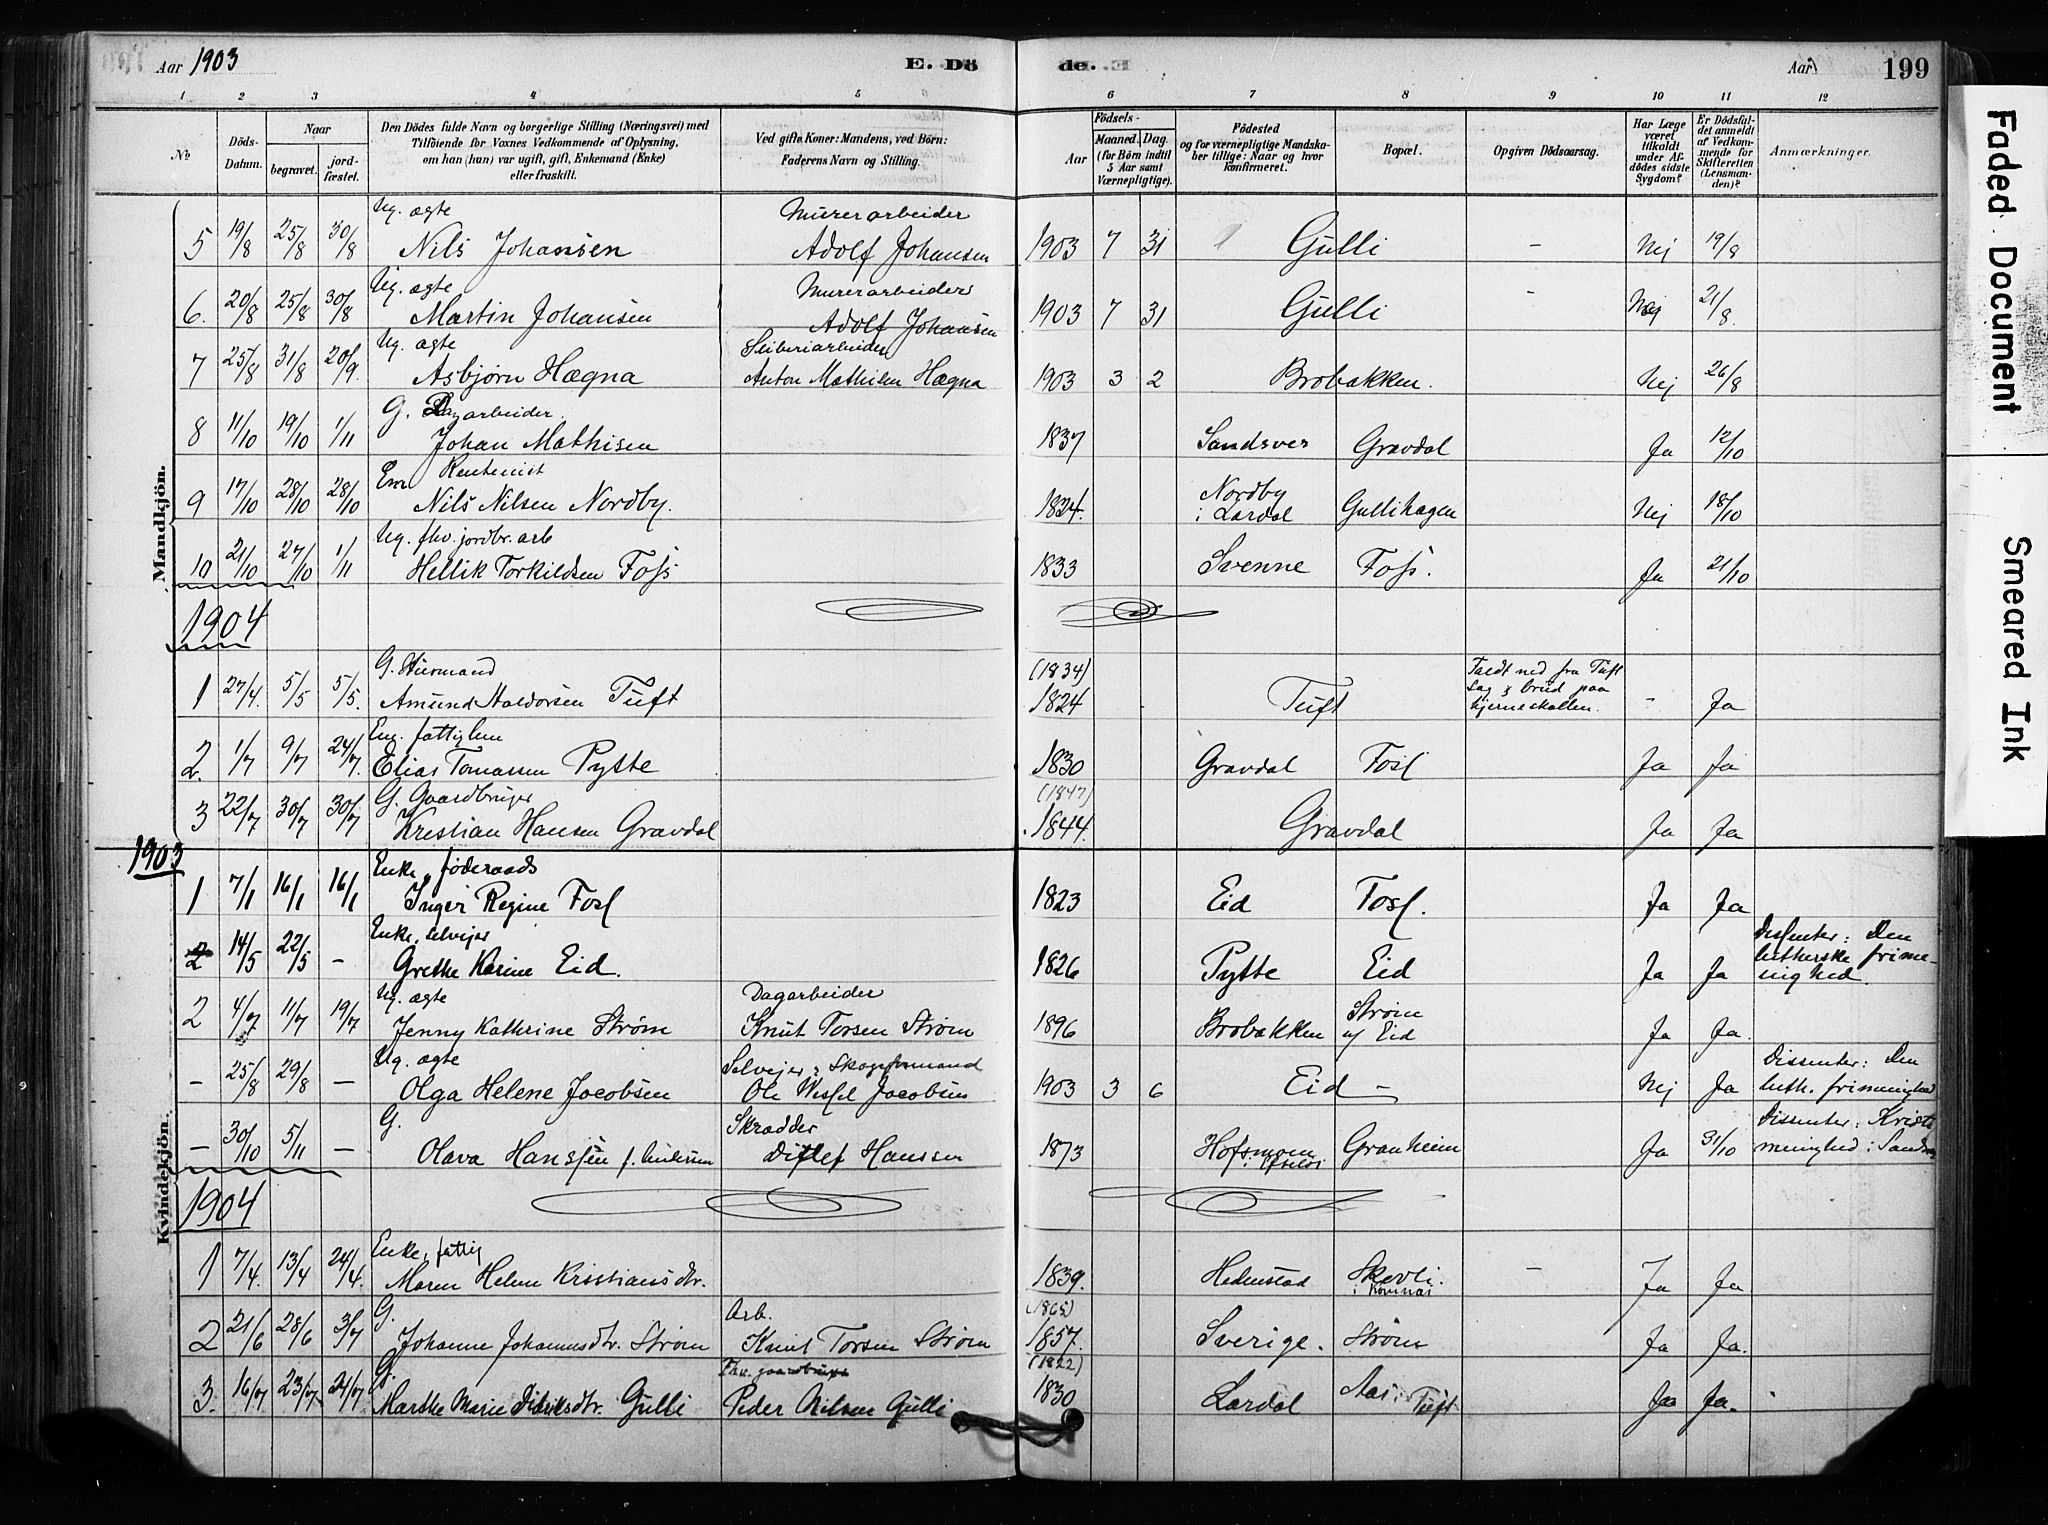 Aar 1903 E. Dö de. Aar 199
1 2 3 4 5 6 7 8 9 10 11 12
№ Döds-Datum. Naar begravet. jord-fæstet. Den Dödes fulde Navn og borgerlige Stilling (Næringsvei) med Tilföiende for Voxnes Vedkommende af Oplysning, om han (hun) var ugift, gift, Enkemand (Enke) eller fraskilt. Ved gifte Koner: Mandens, ved Börn: Faderens Navn og Stilling. Födsels- Aar Maaned. Dag. (for Börn indtil 5 Aar samt Værnepligtige). Födested og for værnepligtige Mandskaber tillige: Naar og hvor konfirmeret. Bopæl. Opgiven Dödsaarsag. Har Læge været tilkaldt under Afdödes sidste Sygdom? Er Dödsfaldet anmeldt af Vedkommende for Skifteretten (Lensmanden)? Anmærkninger.
Mandkjön.
Ug. ægte Murerarbeider
5 19/8 25/8 30/8 Nils Johansen Adolf Johansen 1903 7 31 Gulli - Nej 19/8
Ug. ægte Murerarbeider
6. 20/8 25/8 30/8 Martin Johansen Adolf Johansen 1903 7 31 Gulli - Nej 21/8
Ug. ægte
7 25/8 31/8 20/9. Asbjørn Hægna Anton Mathisen Hægna 1903 3 2 Brobakken. Nej 26/8
G. Dagarbeider.
8 11/10 19/10 1/11 Johan Mathisen 1837 Sandsver Gravdal Ja 12/10
Em Rentenist
9 17/10 28/10 28/10 Nils Nilsen Nordby. 1824. Nordby i Lardal Gullihagen Nej 18/10
Ug. fhv. jordbr. arb
10 21/10 27/10 1/11 Hellik Torkildsen Foss 1833 Svenne Foss. Ja 21/10
1904
G. Huusmand
1 27/4. 5/5 5/5. Amund Haldorsen Tuft (1834) 1824 Tuft Faldt ned fra Tuft Sag & brud paa hjerneskallen. - Ja
Em. fattiglem
2. 1/7 9/7 24/7. Elias Tomassen Pytte 1830 Gravdal Fosl Ja Ja
G. Gaardbruger
3 22/7 30/7 30/7 Kristian Hansen Gravdal (1847) 1844. Gravdal Ja Ja
1903
Kvindekjön.
Enke, føderaads
1 7/1 16/1 16/1 Inger Regine Fosl 1823 Eid Fosl. Ja Ja
Enke, selvejer
2 14/5 22/5 - Grethe Karine Eid. 1826 Pytte Eid Ja Ja Dissenter: Den lutherske frimenighed.
Ug. ægte Dagarbeider
2 4/7 11/7 19/7 Jenny Kathrine Strøm Knut Torsen Strøm 1896 Brobakken Strøm u/ Eid Ja Ja.
Ug. ægte Selvejer & Skogsformand
- 25/8 29/8 - Olga Helene Jacobsen Ole Wessel Jacobsen 1903 3 6 Eid - Nej Ja Dissenter: Den luth. frimenighed
G. Skrædder
- 30/10 5/11 - Olava Hanssen f. Ditlef Hanssen 1873 Hofsmoen Granheim Ja 31/10 Dissenter: menighed i
1904
Enke, fattig
1 7/4. 13/4 24/4. Maren Helene Kristiansdtr. 1839. Hedenstad Skevli. i Komnæs - Ja Ja
G. Arb.
2 21/6 28/6 3/7 Johanne Johannesdtr. Strøm Knut Torsen Strøm (1865) 1857. Sverige. Strøm Ja Ja.
G. Fhv. gaardbruger
3. 16/7 23/7 24/7 Marthe Marie Didriksdtr. Gulli Peder Nilsen Gulli (1822) 1830 Lardal Aas i Tuft Ja Ja.
Faded Document
Smeared Ink